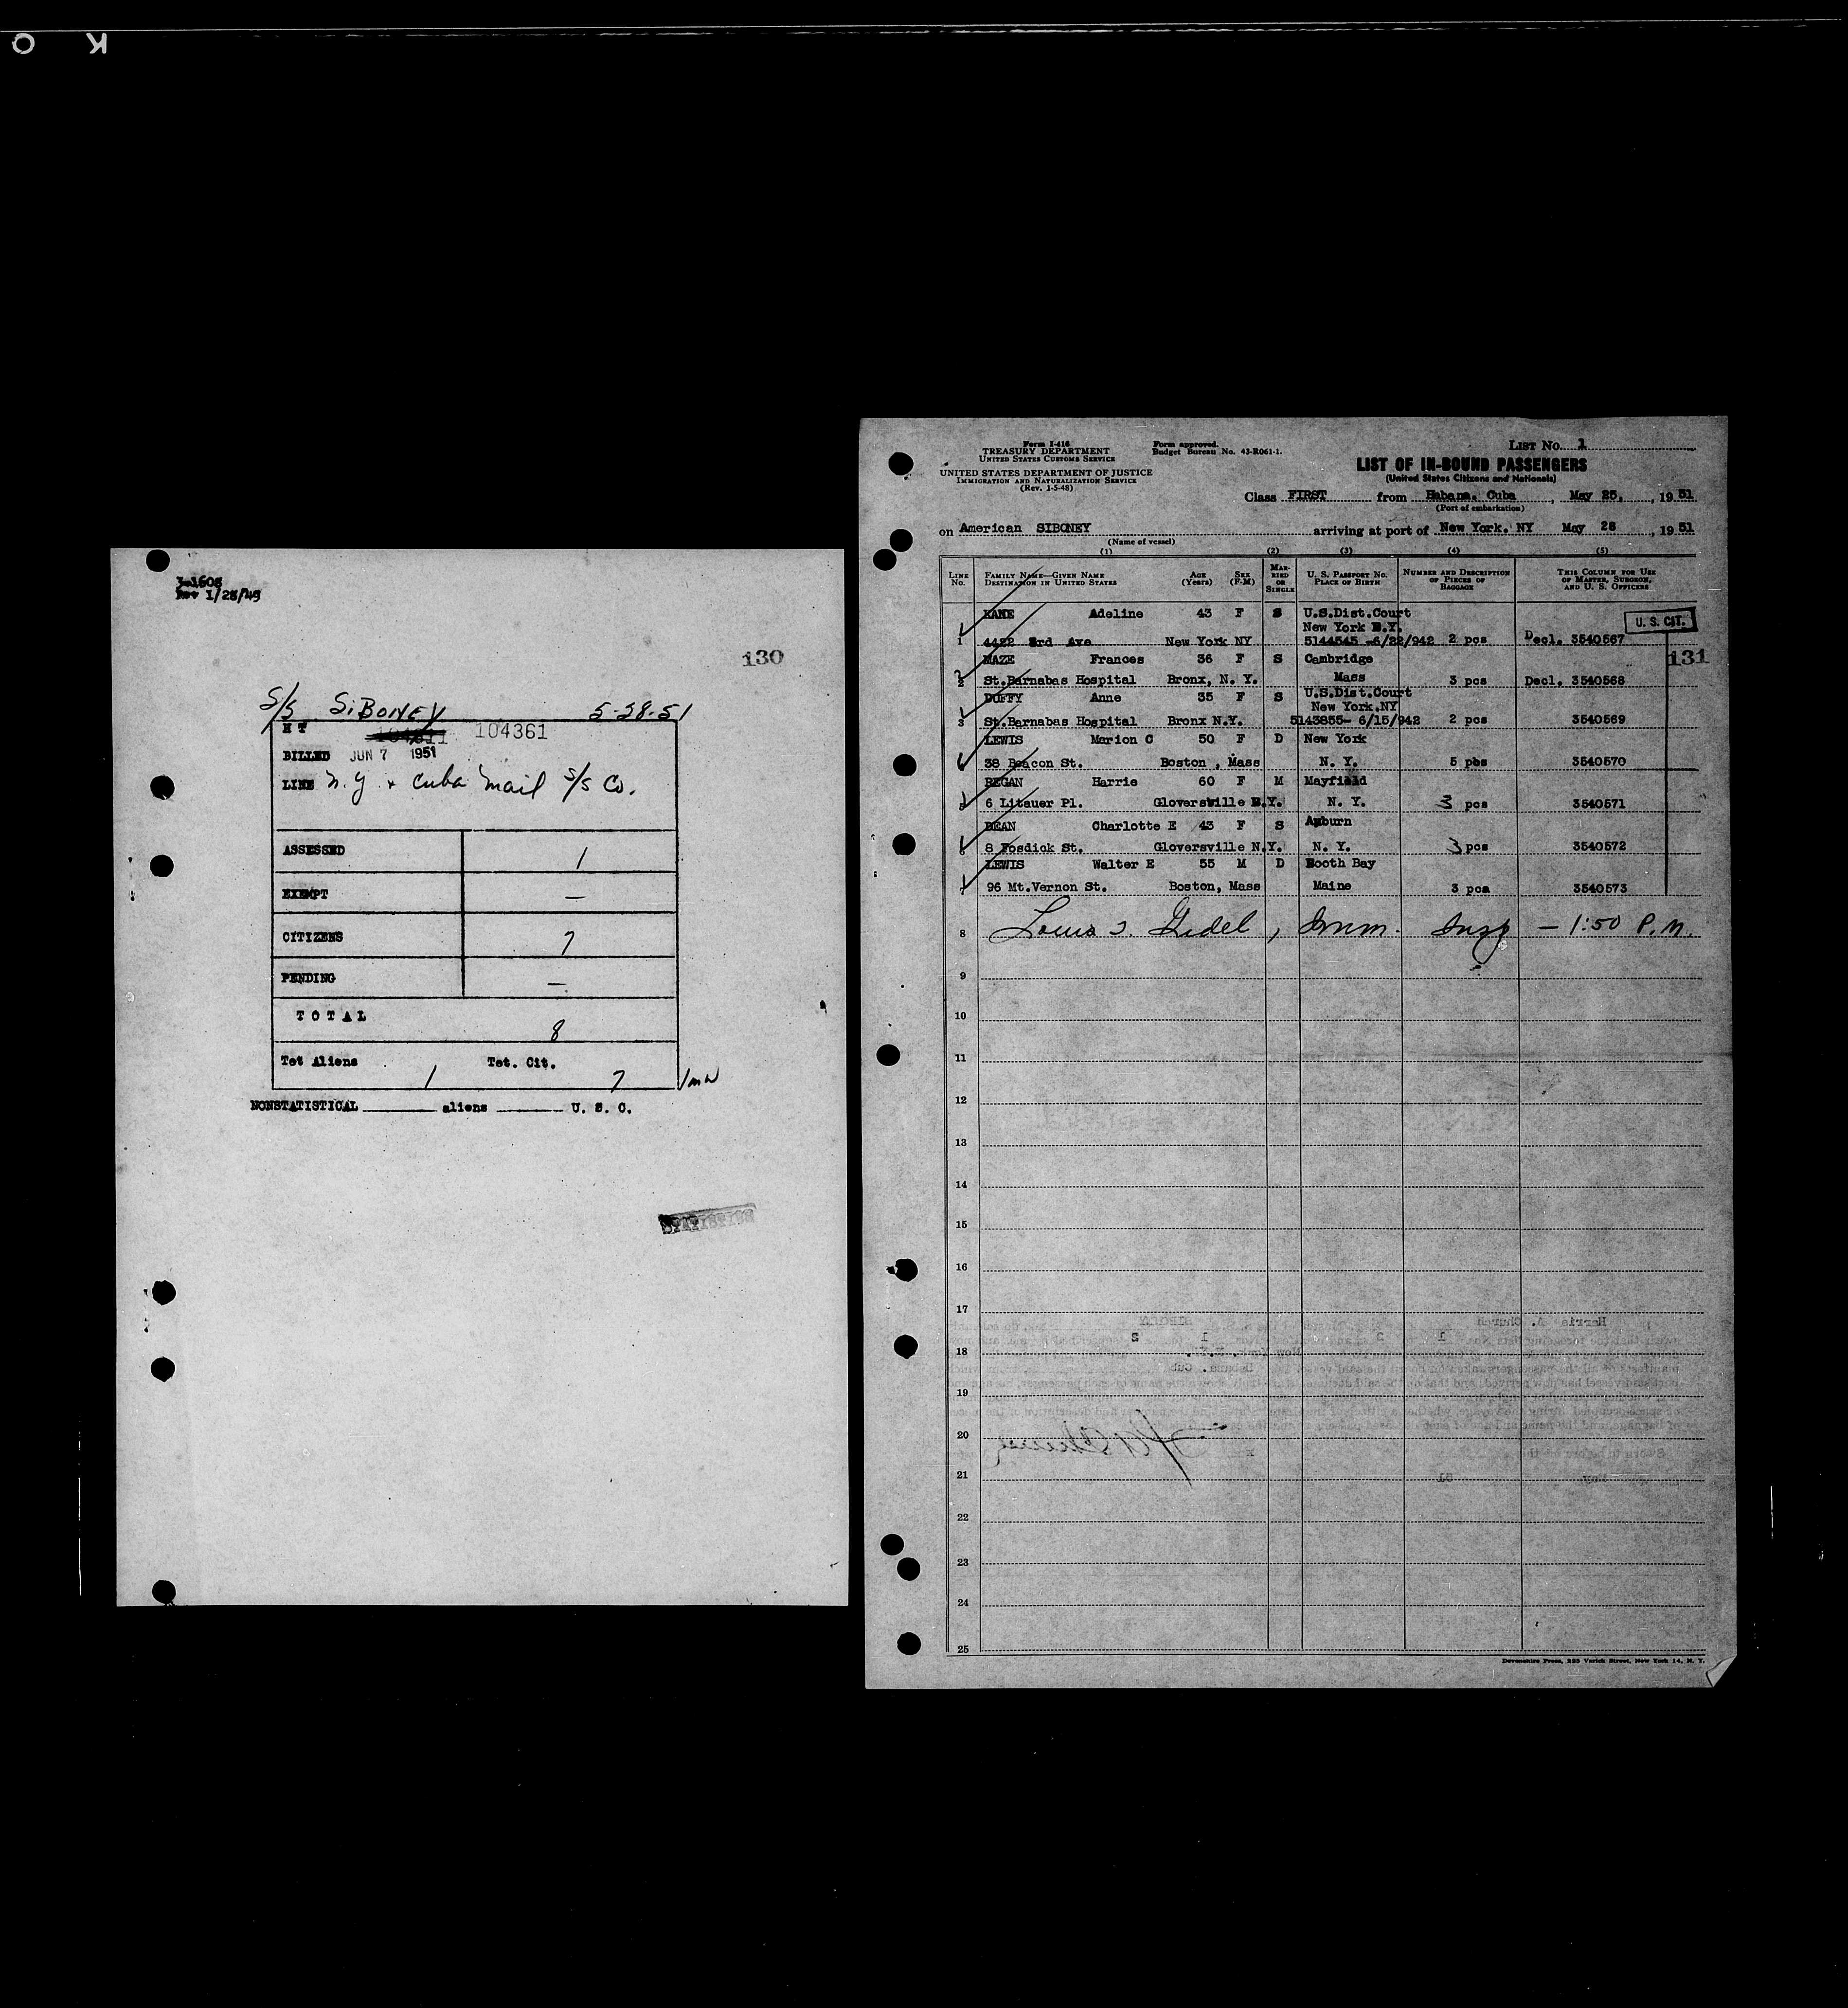 O K
3-1608
Rev 1/28/49
130
S/S SiBONEY 5-28-51
H T 104361
BILLED JUN 7 1951
LINE N.Y. + Cuba Mail S/S Co.
ASSESSED 1
EXEMPT —
CITIZENS 7
PENDING —
TOTAL 8
Tot Aliens 1 Tot. Cit. 7
NONSTATISTICAL aliens U. S. C.
STATISTICS
Form I-416
TREASURY DEPARTMENT
UNITED STATES CUSTOMS SERVICE
UNITED STATES DEPARTMENT OF JUSTICE
IMMIGRATION AND NATURALIZATION SERVICE
(Rev. 1-5-48)
Form approved.
Budget Bureau No. 43-R061-1.
LIST No. 1
LIST OF IN-BOUND PASSENGERS
(United States Citizens and Nationals)
Class FIRST from Habana. Cuba , May 25, , 1951
(Port of embarkation)
on American SIBONEY arriving at port of New York. NY May 28 , 1951
(Name of vessel)
(1) (2) (3) (4) (5)
LINE NO. FAMILY NAME—GIVEN NAME DESTINATION IN UNITED STATES AGE (Years) SEX (F-M) MARRIED OR SINGLE U. S. PASSPORT NO. PLACE OF BIRTH NUMBER AND DESCRIPTION OF PIECES OF BAGGAGE THIS COLUMN FOR USE OF MASTER, SURGEON, AND U. S. OFFICERS
KANE Adeline 43 F S U.S.Dist.Court
New York N.Y.
U. S. CIT.
1 4422 3rd Ave New York NY 5144545 -6/22/942 2 pcs Decl. 3540567
MAZE Frances 36 F S Cambridge
131
2 St.Barnabas Hospital Bronx, N. Y. Mass 3 pcs Decl. 3540568
DUFFY Anne 35 F S U.S.Dist.Court
New York.NY
3 St.Barnabas Hospital Bronx N.Y. 5143855- 6/15/942 2 pcs 3540569
LEWIS Marion C 50 F D New York
38 Beacon St. Boston , Mass N. Y. 5 pcs 3540570
REGAN Harrie 60 F M Mayfield
6 Litauer Pl. Gloversville N.Y. N. Y. 3 pcs 3540571
DEAN Charlotte E 43 F S Auburn
8 Fosdick St. Gloversville N.Y. N. Y. 3 pcs 3540572
LEWIS Walter E 55 M D Booth Bay
96 Mt.Vernon St. Boston, Mass Maine 3 pcs 3540573
8 Louis Gidel, Imm. Insp — 1:50 P.M.
9
10
11
12
13
14
15
16
17
18
19
20
21
22
23
24
25
Devonshire Press, 225 Varick Street, New York 14, N. Y.